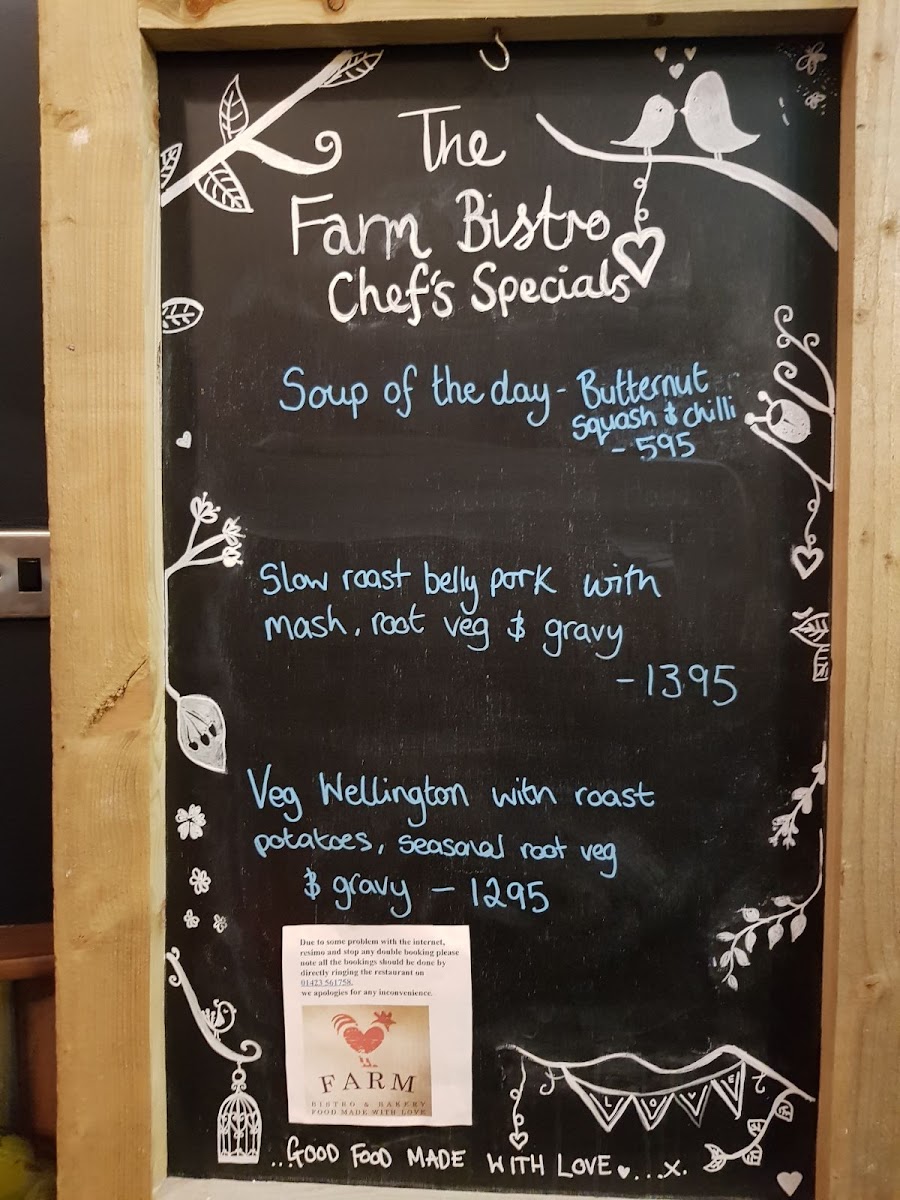 The
Farm Bistro
Chef's Specials
Soup of the day - Butternut
squash & chilli
- 595
Slow roast belly pork with
mash, root veg & gravy
- 1395
Veg Wellington with roast
potatoes, seasonal root veg
& gravy - 1295
Due to some problem with the internet,
resimo and stop any double booking please
note all the bookings should be done by
directly ringing the restaurant on
01423 561758.
we apologies for any inconvenience.
FARM
BISTRO & BAKERY
FOOD MADE WITH LOVE
LOVE
...GOOD FOOD MADE WITH LOVE ♥...x.